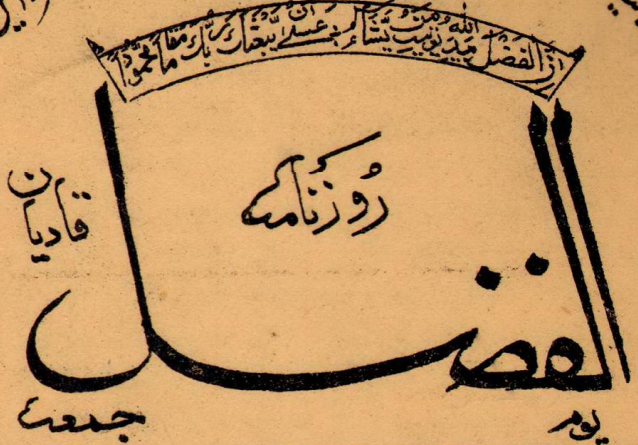 ان الفضل بيد الله يؤتيه من يشاء عسى ان يبعثك ربك مقاما محمودا
روزنامہ
الفضل
قادیان
یوم جمعہ